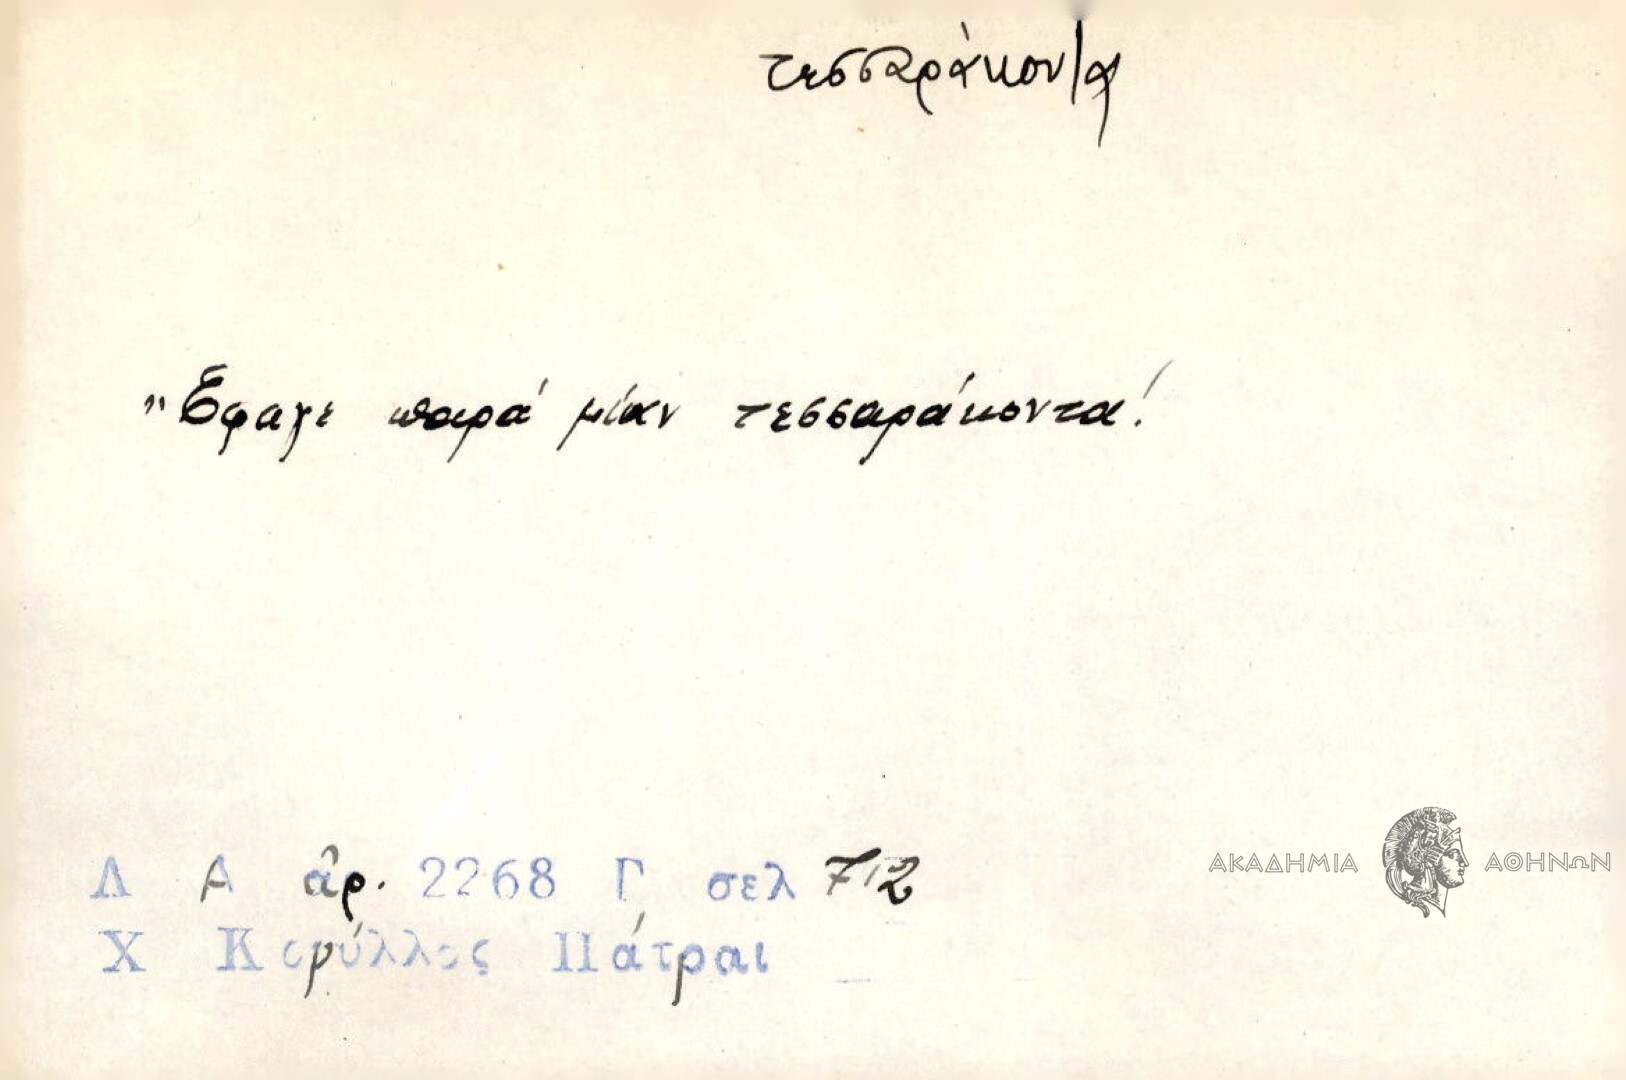 τεσσαράκοντα
"Εφαγε παρά μίαν τεσσαράκοντα!
Λ Α ἀρ. 2268 Γ σελ 712
Χ Κορύλλος Πάτραι
ΑΚΑΔΗΜΙΑ ΑΘΗΝΩΝ